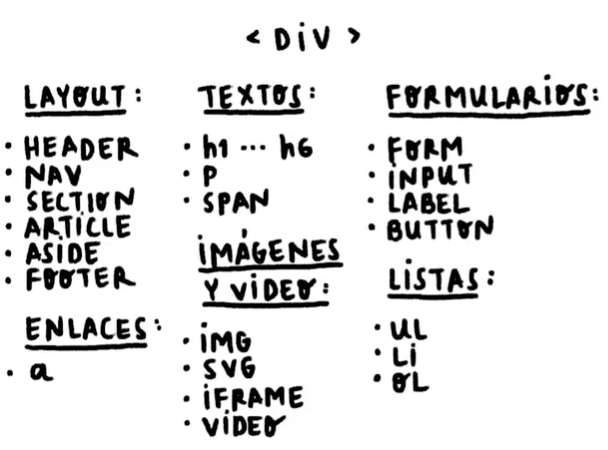 < DiV >
LAYOUT:
· HEADER
· NAV
· SECTION
· ARTICLE
· ASIDE
· FOOTER
ENLACES:
· a
TEXTOS:
· h1 ... h6
· P
· SPAN
iMÁGENES
Y ViDEO:
· iMG
· SVG
· iFRAME
· ViDEO
FORMULARiOS:
· FORM
· iNPUT
· LABEL
· BUTTON
LiSTAS:
· UL
· Li
· OL